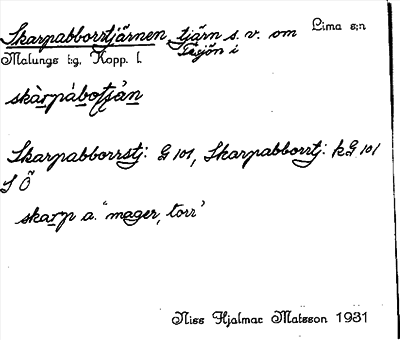 Skarpabborrtjärnen, tjärn s. v. om Lima s:n
Tisjön i
Malungs t:g, Kopp. l.
skàrpábotjä̀n
Skarpabborrstj: G 101, Skarpabborrtj: kG 101
S Ö
skarp a. "mager, torr"
Nils Hjalmar Matsson 1931